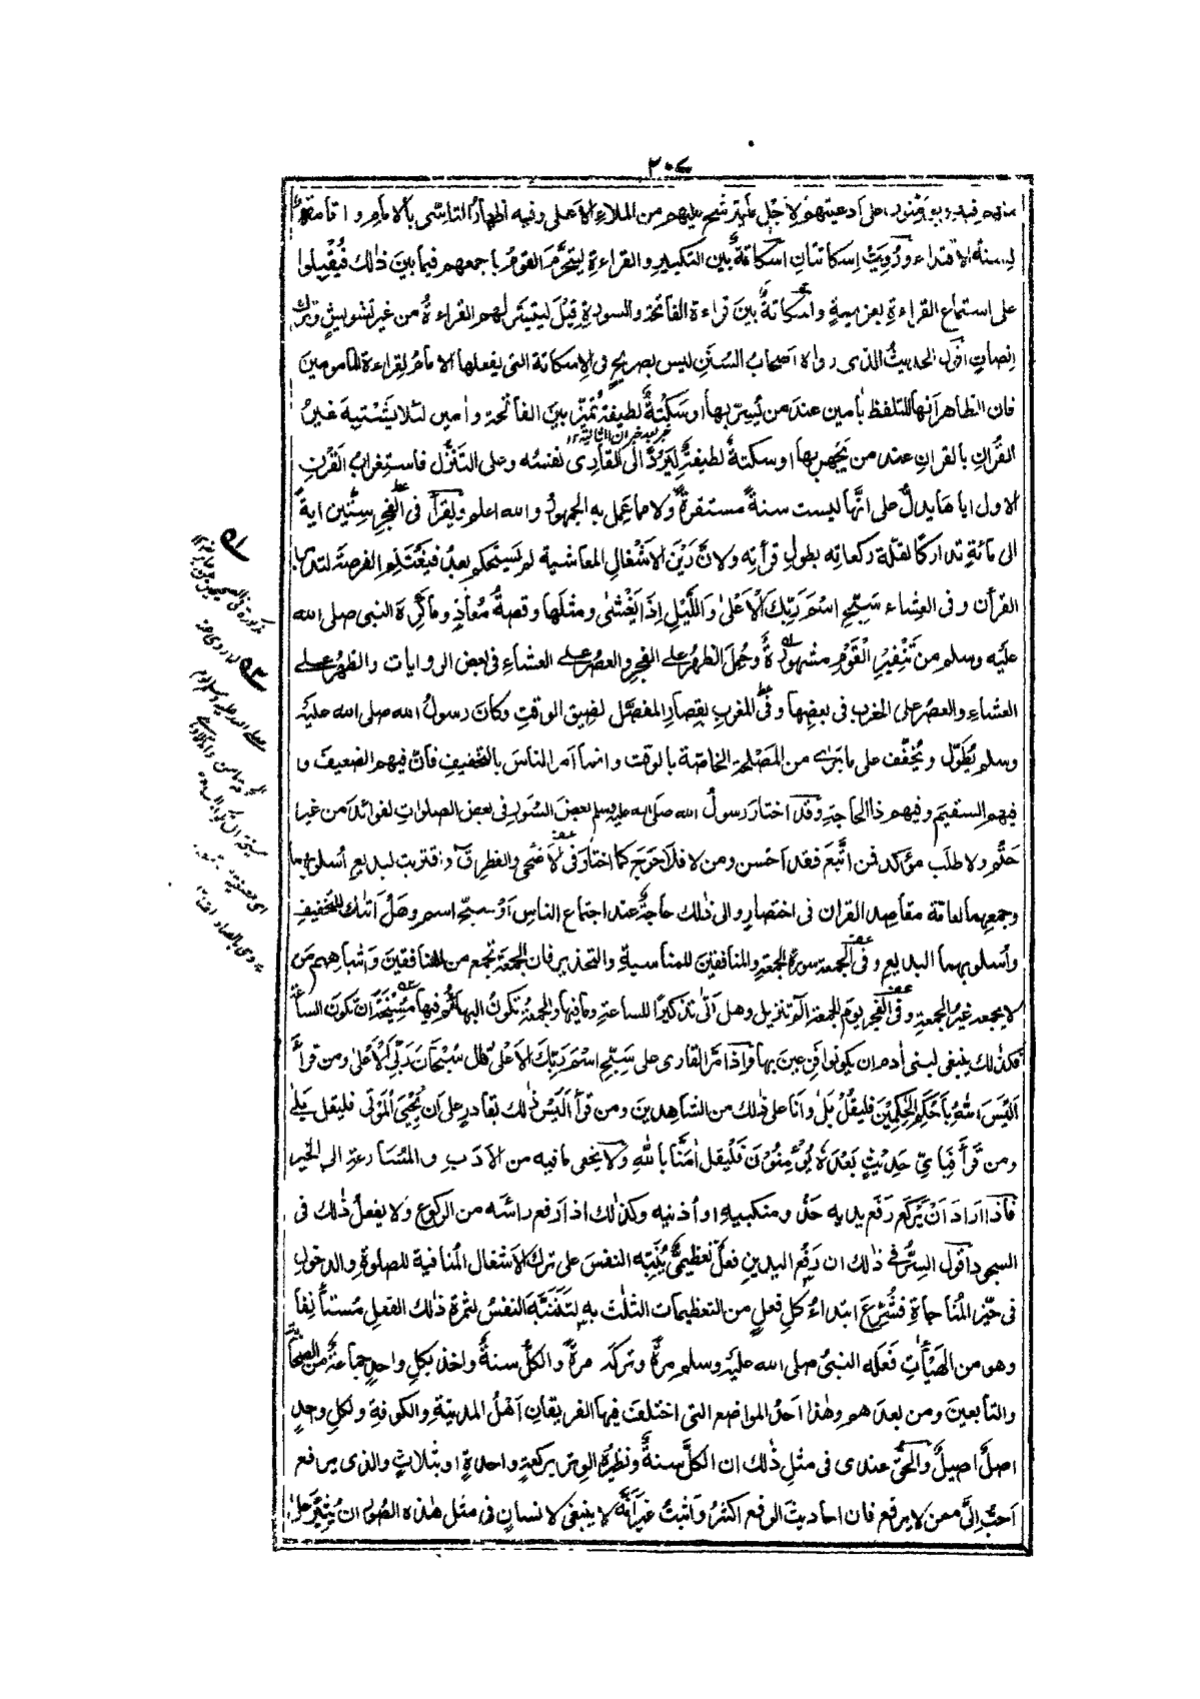 ٢٠٧
على أدعيتهم لأجل ما يترشح عليهم من الملاء الاعلى وفيه اظهار التاسي بالامام واقامة
لسنة الاقتداء ورُوِيَتْ إسكاتتان اسكاتة بين التكبير والقراءة ليتحرَّم القوم باجمعهم فيما بين ذلك فيُقْبِلوا
على استماع القراءة بعزيمة واسكاتة بين قراءة الفاتحة والسورة قيل ليتيسَّر لهم القراءة من غير تشويش وترك
إنصات اقول الحديث الذى رواه اصحاب السُّنَن ليس بصريح فى الاسكاتة التى يفعلها الامام لقراءة المأمومين
فان الظاهر أنها للتلفظ بآمين عند من يُسِرّ بها او سَكْتة لطيفة تميز بين الفاتحة وآمين لئلا يشتبه غير
القرآن بالقرآن عند من يَجْهر بها او سكتة لطيفة لِيَرُدَّ الى القارى نفسه وعلى التنزّل فاستغراب القرن
الاول اياها يدلّ على انّها ليست سنة مستقرة ولا مما عمل به الجمهور والله اعلم ويقرأ فى الفجر ستّين آية
الى مائة تداركًا لقلة ركعاته بطول قرأته ولانَّ رَيْن الاشغال المعاشية لم يستحكم بعدُ فيغتنم الفرصة لتدبر
القرآن وفى العشاء سَبِّحِ اسْمَ رَبِّكَ الْاَعْلٰى وَاللَّيْلِ اِذَا يَغْشٰى ومثلها وقصةُ مُعاذٍ وما كَرِهَ النبى صلى الله
عليه وسلم من تَنْفيرِ القوم مشهورةٌ وحُمِلَ الظهرُ على الفجرِ والعصرُ على العشاءِ فى بعض الروايات والظهرُ على
العشاءِ والعصرُ على المغرب فى بعضها وفى المغرب بقصار المفصَّل لضيق الوقت وكان رسول الله صلى الله عليه
وسلم يُطَوِّل ويُخَفِّف على ما يَرٰى من المصلحة الخاصّة بالوقت وانما أمر الناسَ بالتخفيفِ فانّ فيهم الضعيفَ و
فيهم السقيمَ وفيهم ذا الحاجةِ وقد اختارَ رسولُ الله صلى الله عليه وسلم بعضَ السُّوَرِ فى بعض الصلوات لفوائد من غير
حَتْمٍ ولا طلب مؤكد فمن اتَّبَعَ فقد احسن ومن لا فلا حَرَجَ كما اختارَ فى الاضحى والفطر قٓ واقتربت لبديع أسلوبهما
وجمعهما لعامة مقاصد القرآن فى اختصار والى ذلك حاجةٌ عند اجتماع الناس اَوْ سبّح اسم وهل اَتٰىك للتخفيف
واُسلوبهما البديع وفى الجمعة سورةَ الجمعةِ والمنافقينَ للمناسبةِ والتحذير فان الجمعةَ تجمع من المنافقينَ واَشباههم مَن
لا يجمعه غيرُ الجمعةِ وفى الفجرِ يومَ الجمعةِ الٓمّٓ تنزيل وهل اَتٰى تذكيرًا للساعةِ وما فيها والجمعةُ تكونُ البهائمُ فيها مُسِيخَةً ان تكون الساعة
فكذلك ينبغى لبنى أدم ان يكونوا فزعين بها واذا مَرَّ القارى على سَبِّحِ اسْمَ رَبِّكَ الْاَعْلٰى قال سُبْحَانَ رَبِّىَ الْاَعْلٰى ومن قرأ
اَلَيْسَ اللهُ بِاَحْكَمِ الْحٰكِمِيْنَ فليقُلْ بلٰى وانا على ذلك من الشاهدين ومن قرأ اَلَيْسَ ذٰلك بقادرٍ على اَن يُّحْيِىَ الْمَوْتٰى فليقل بَلٰى
ومن قَرَأَ فَبِاَىِّ حَدِيْثٍ بَعْدَهٗ يُؤْمِنُوْنَ فَليقل اٰمَنَّا بالله ولا يخفى ما فيه من الاَدَب والمُسارعةِ الى الخير
فاذا اَرَادَ اَنْ يَّرْكَعَ رَفَعَ يديه حَذْو منكبيه او أذنيه وكذلك اذا رفع رأسَه من الركوع ولا يفعل ذلك فى
السجود اقول السِّرُّ فى ذلك ان رَفْع اليدين فعلٌ تعظيمىٌّ يُنَبِّه النفسَ على ترك الاشغال المنافية للصلوة والدخول
فى حيّز المُناجاة فشُرِعَ ابتداءُ كلِ فعلٍ من التعظيمات الثلٰث به لتَتَنَبَّهَ النفسُ لثمرة ذلك الفعل مُستأنِفًا
وهو من الهَيْأٰتِ فعله النبىُ صلى الله عليه وسلم مرةً وتركه مرةً والكلُّ سنةٌ واخذ بكلِ واحدٍ جماعةٌ من الصحابة
والتابعين ومن بعدهم وهٰذا اَحدُ المواضع التى اختلفَ فيها الفريقانِ اَهْلُ المدينةِ والكوفةِ ولكلِ واحدٍ
اصلٌ اصيلٌ والحقُّ عندى فى مثل ذلك ان الكلَّ سنةٌ ونظيرُه الوترُ بركعةٍ واحدةٍ او بثلاثٍ والذى يرفع
اَحبُّ اِلىَّ ممن لا يرفع فان احاديثَ الرفع اكثرُ واَثبتُ غيرَ اَنَّه لا ينبغى لانسانٍ فى مثل هٰذه الصُّوَر ان يُثِيْرَ على